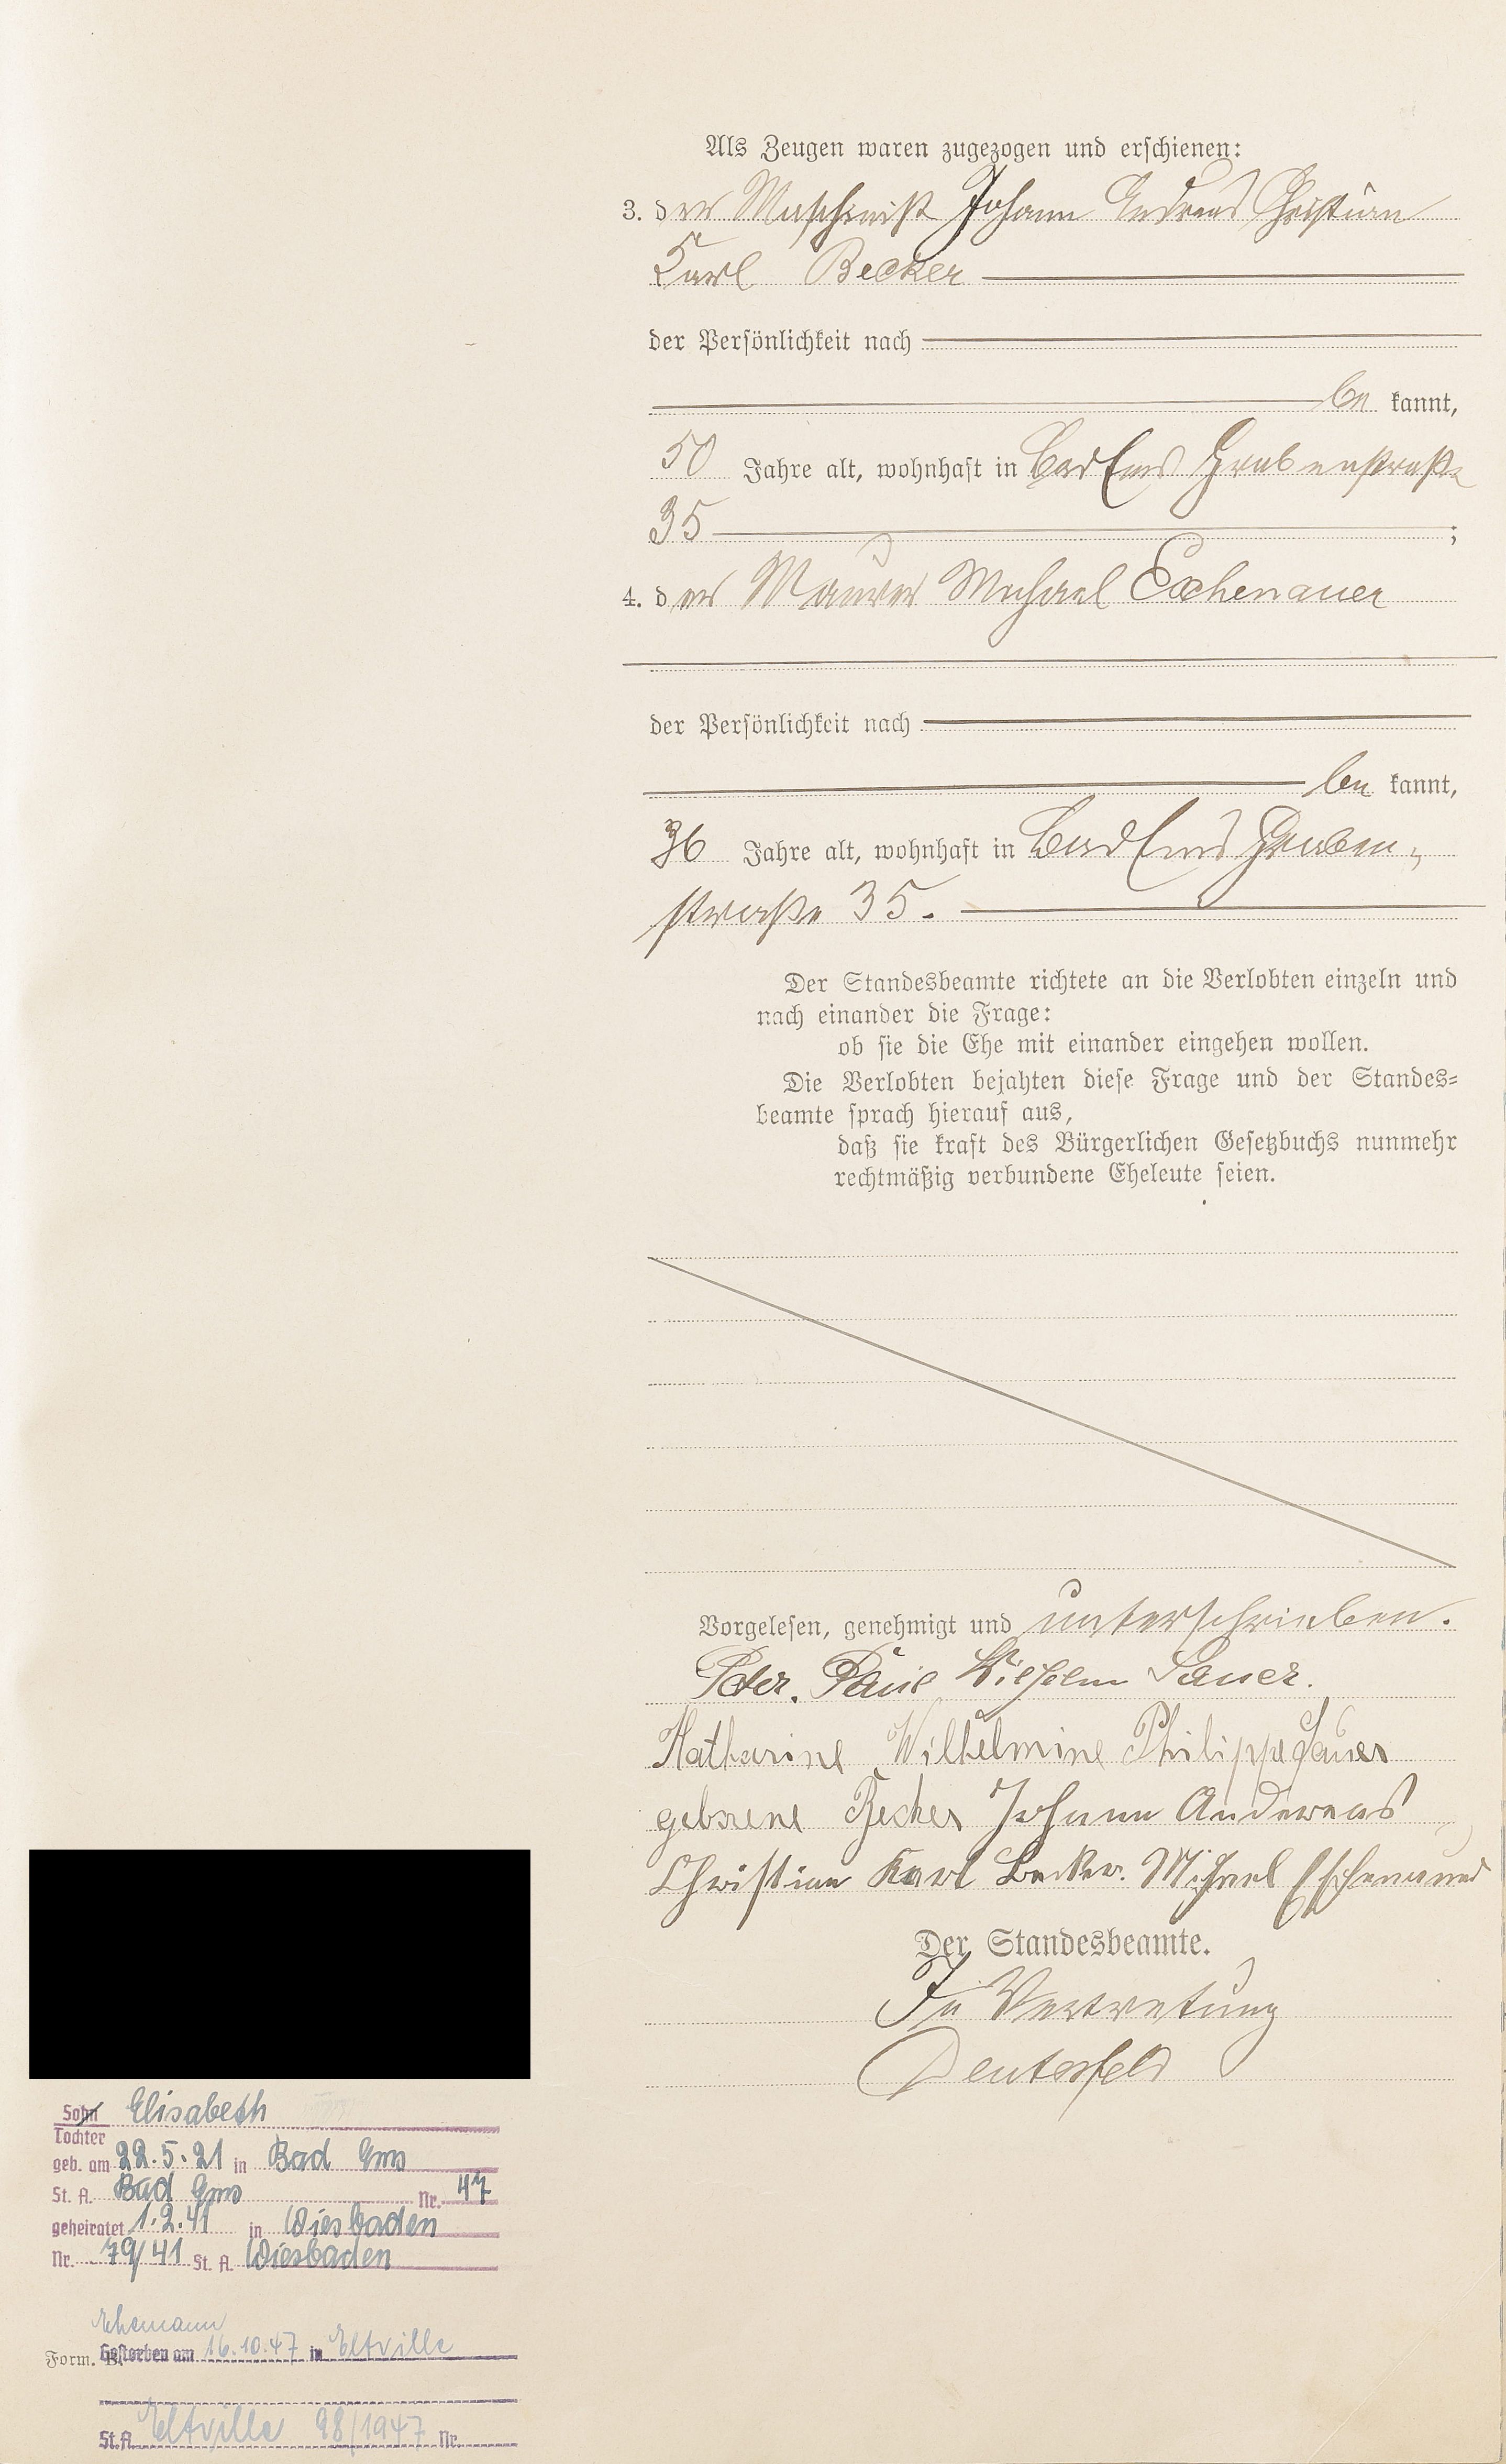 Als Zeugen waren zugezogen und erschienen:
3. der Maschinist Johann Andreas Christian
Karl Becker
der Persönlichkeit nach
be kannt,
50 Jahre alt, wohnhaft in Bad Ems Grabenstraße
35 ;
4. der Maurer Michael Eschenauer
der Persönlichkeit nach
be kannt,
36 Jahre alt, wohnhaft in Bad Ems Graben-
straße 35.
Der Standesbeamte richtete an die Verlobten einzeln und
nach einander die Frage:
ob sie die Ehe mit einander eingehen wollen.
Die Verlobten bejahten diese Frage und der Standes-
beamte sprach hierauf aus,
daß sie kraft des Bürgerlichen Gesetzbuchs nunmehr
rechtmäßig verbundene Eheleute seien.
Vorgelesen, genehmigt und unterschrieben.
Peter. Paul Wilhelm Sauer.
Katharine Wilhelmine Philippe Sauer
geborene Becker Johann Andereas
Christian Karl Becker. Michael Eschenauer
Der Standesbeamte.
In Vertretung
Deutesfeld
Sohn Elisabeth
Tochter
geb. am 22.5.21 in Bad Ems
St. A. Bad Ems Nr. 47
geheiratet 1.2.41 in Wiesbaden
Nr. 79/41 St. A. Wiesbaden
Ehemann
Form. Gestorben am 16.10.47 in Eltville
St.A. Eltville 98/1947 Nr.